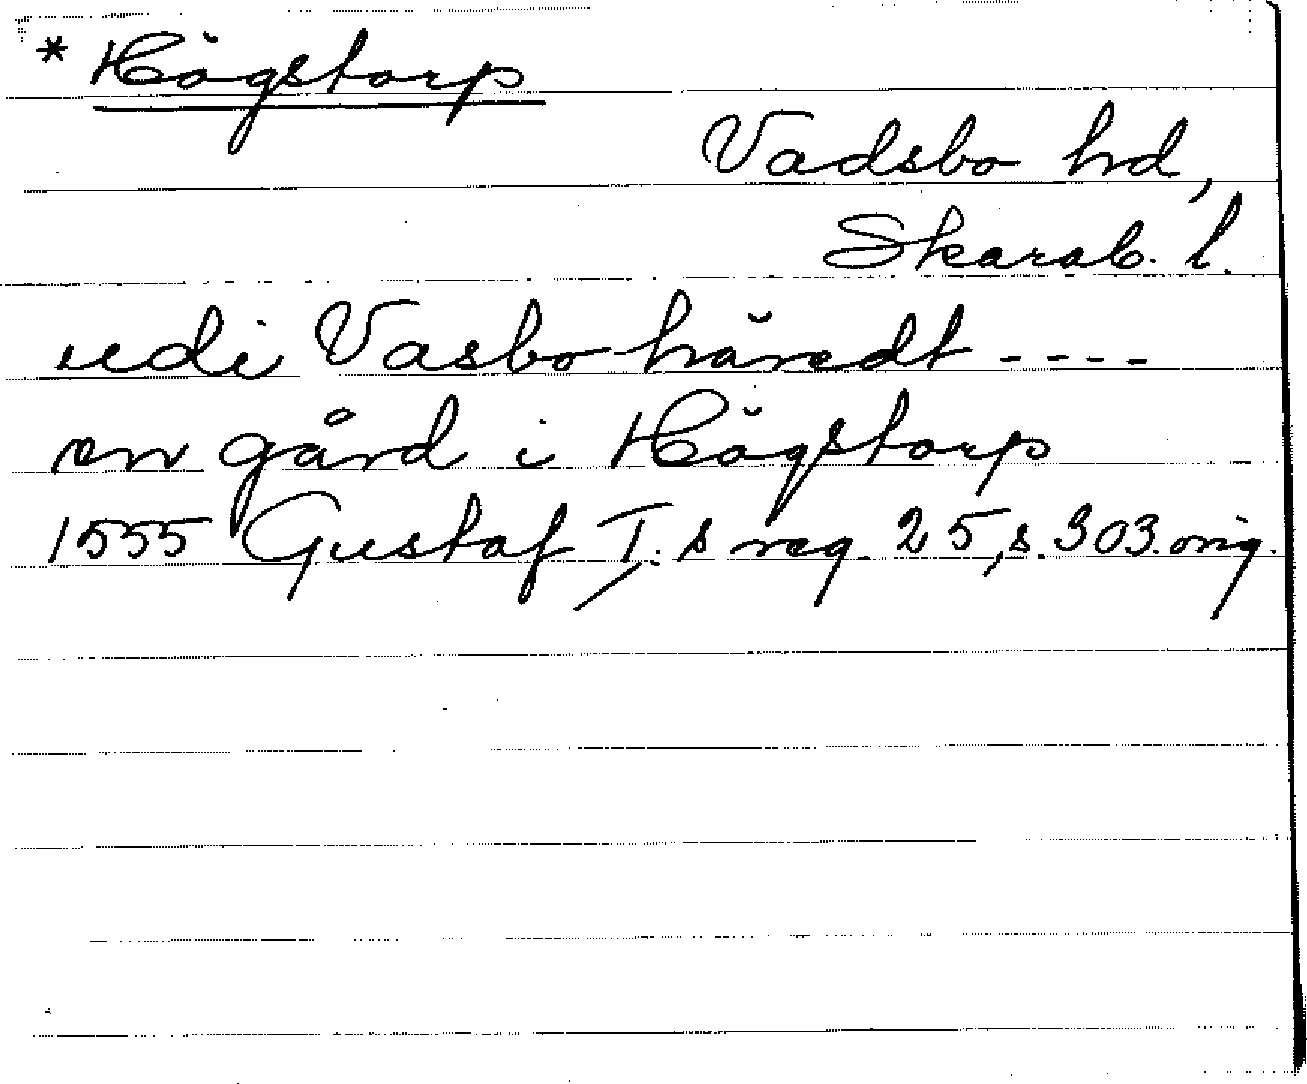 * Högstorp
Vadsbo hd,
Skarab. l.
udi Vasbo häredt ----
en gård i Högstorp
1555 Gustaf I. s reg. 25, s. 303. orig.